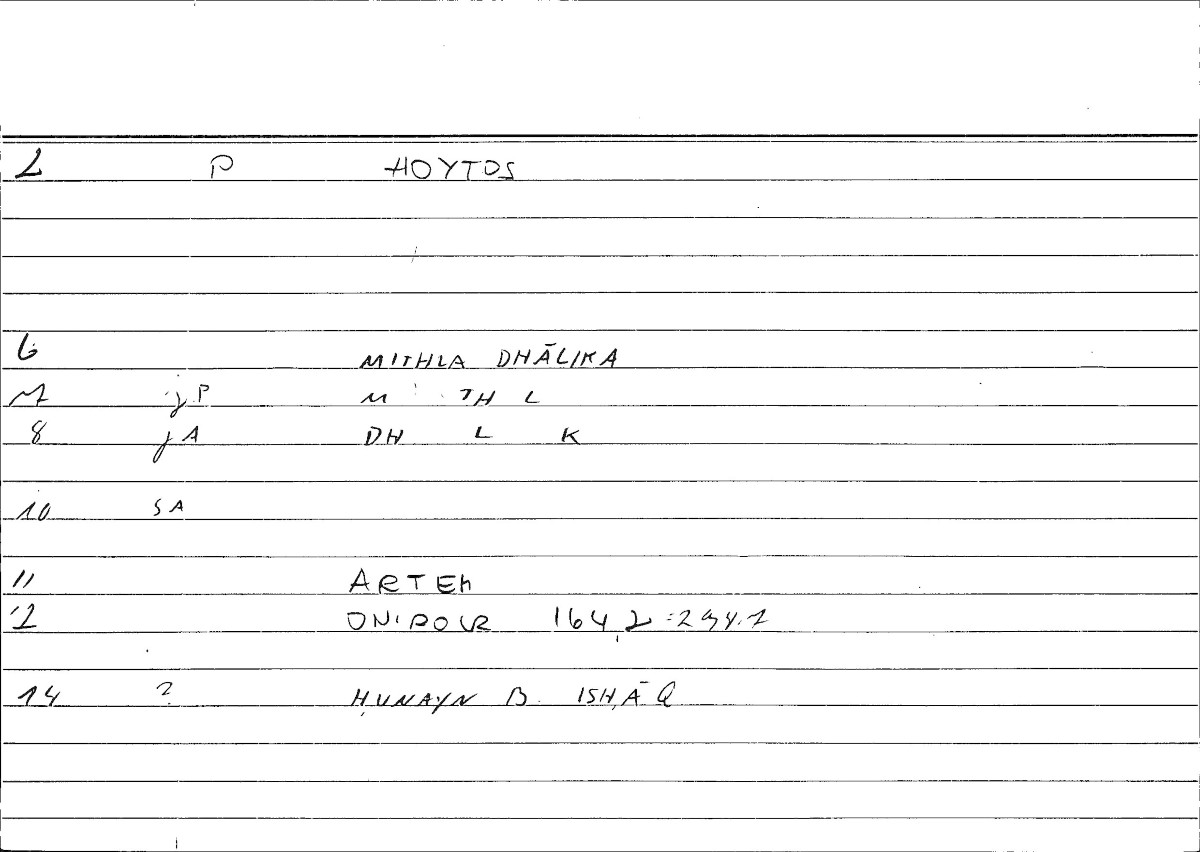 2 P HOYTOS
6 MITHLA DHĀLIKA
7 jP M TH L
8 jA DH L K
10 SA
11 ARTEM
12 ONIROCR 164,2 = 294.1
14 ? ḤUNAYN B. ISḤĀQ